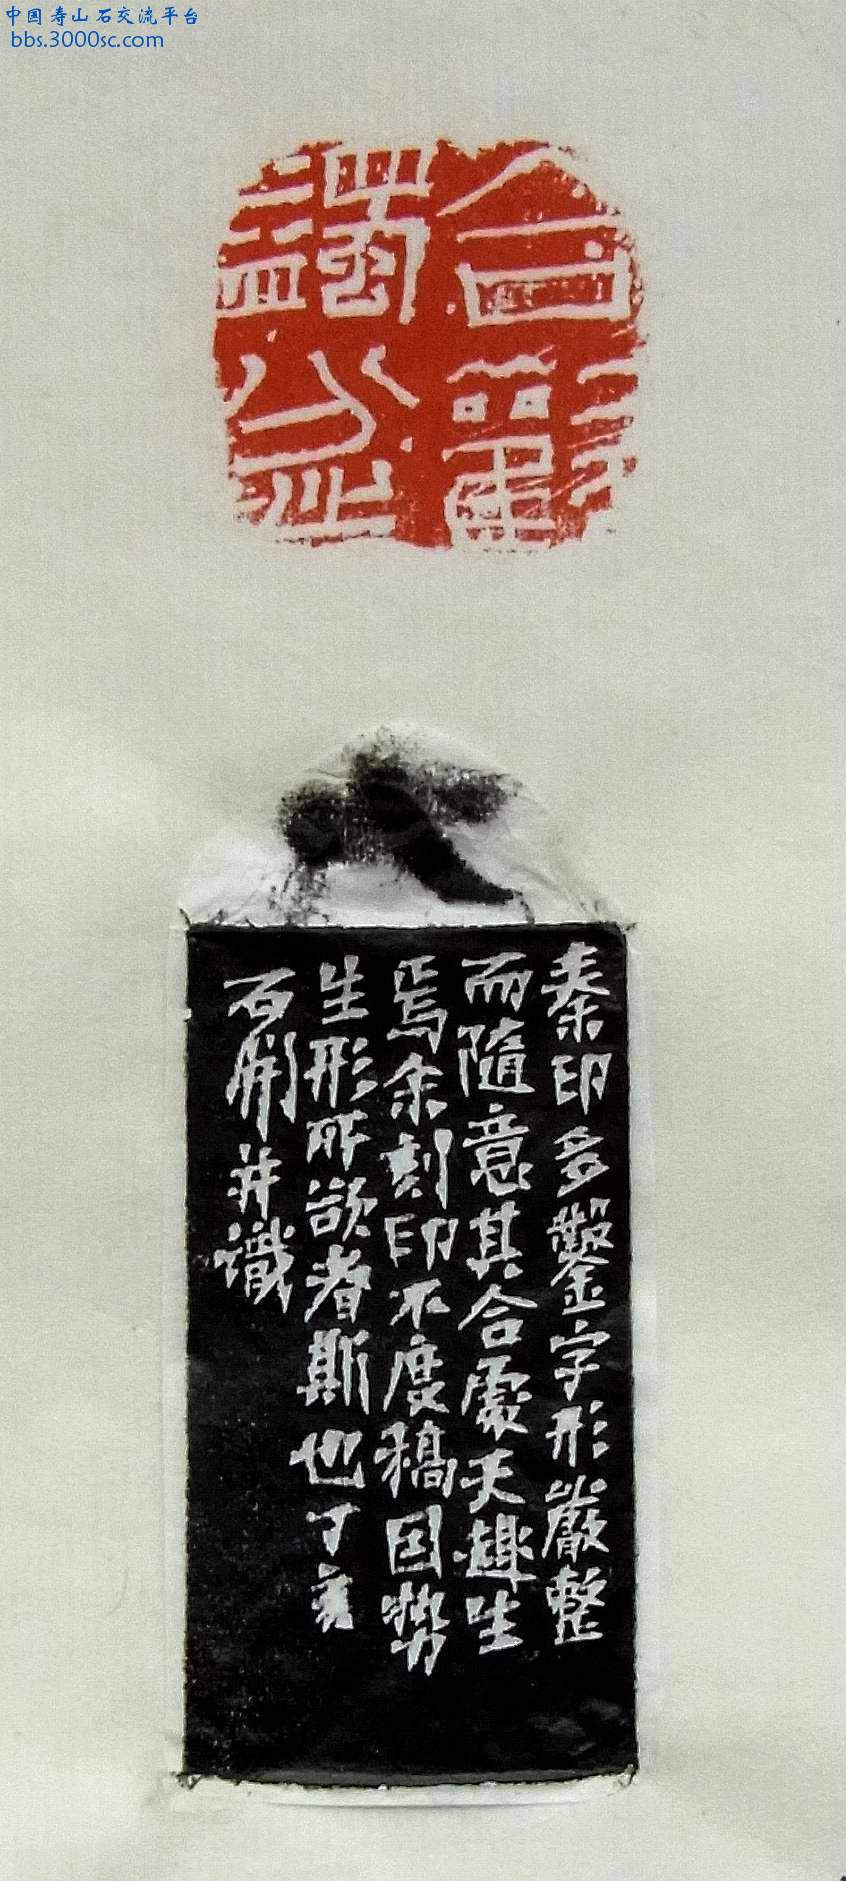 中国寿山石交流平台
bbs.3000sc.com
秦印多鑿字形嚴整
而隨意其合處天趣生
焉余刻印不度稿因勢
生形所欲者斯也丁亥
石開并識